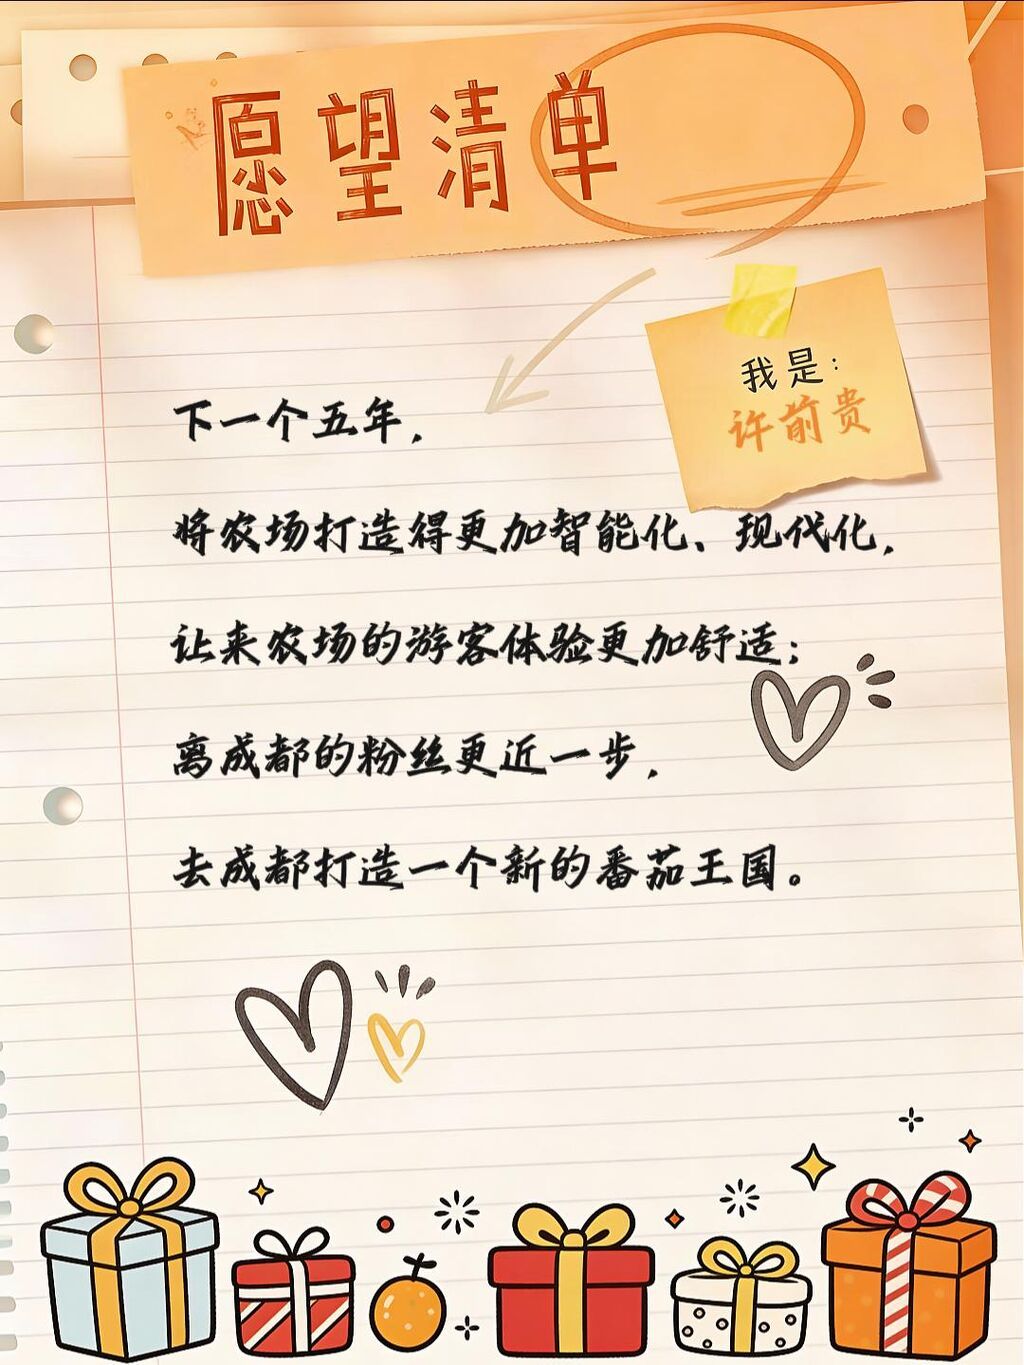 愿望清单
我是:
许前贵
下一个五年,
将农场打造得更加智能化、现代化,
让来农场的游客体验更加舒适;
离成都的粉丝更近一步,
去成都打造一个新的番茄王国。